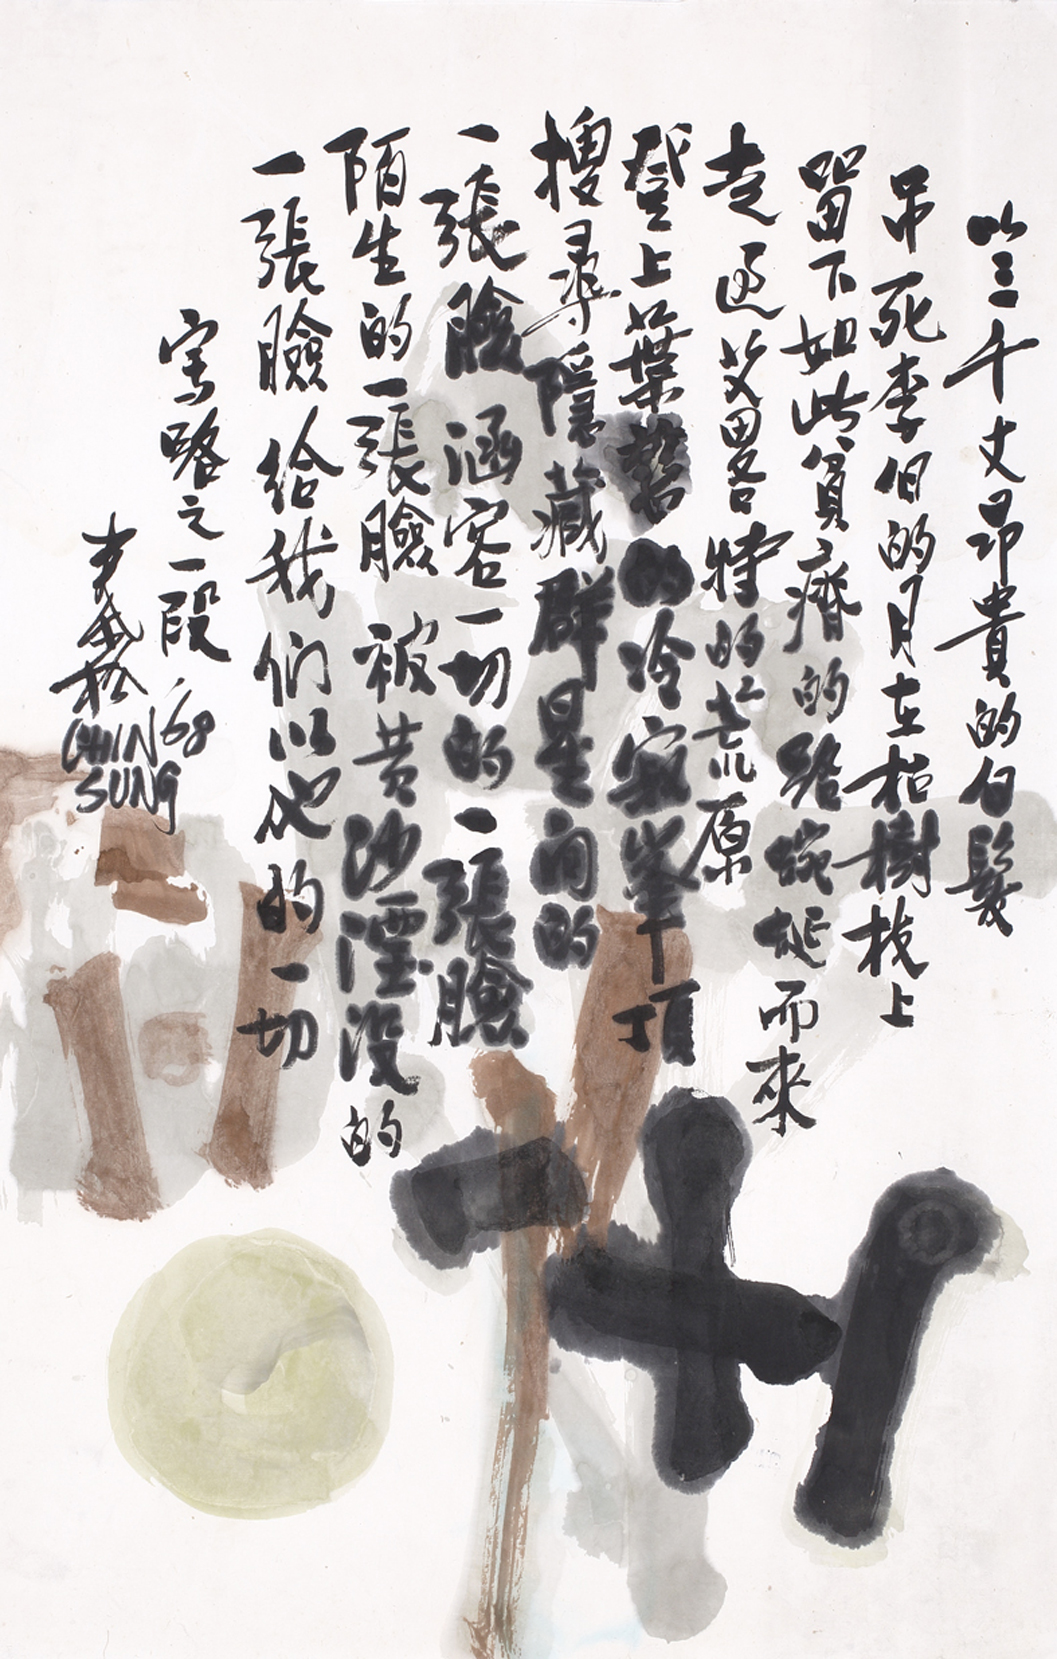 以三千丈昂貴的白髮
吊死李白的月在枯樹枝上
留下如此貧瘠的給蜿蜒而來
走過艾畧特的荒原
登上葉慈的冷寂峯頂
搜尋隱藏群星間的
一張臉涵容一切的一張臉
陌生的一張臉被黃沙湮沒的
一張臉給我們以他的一切
之一段 '68
松
CHIN
SUNG